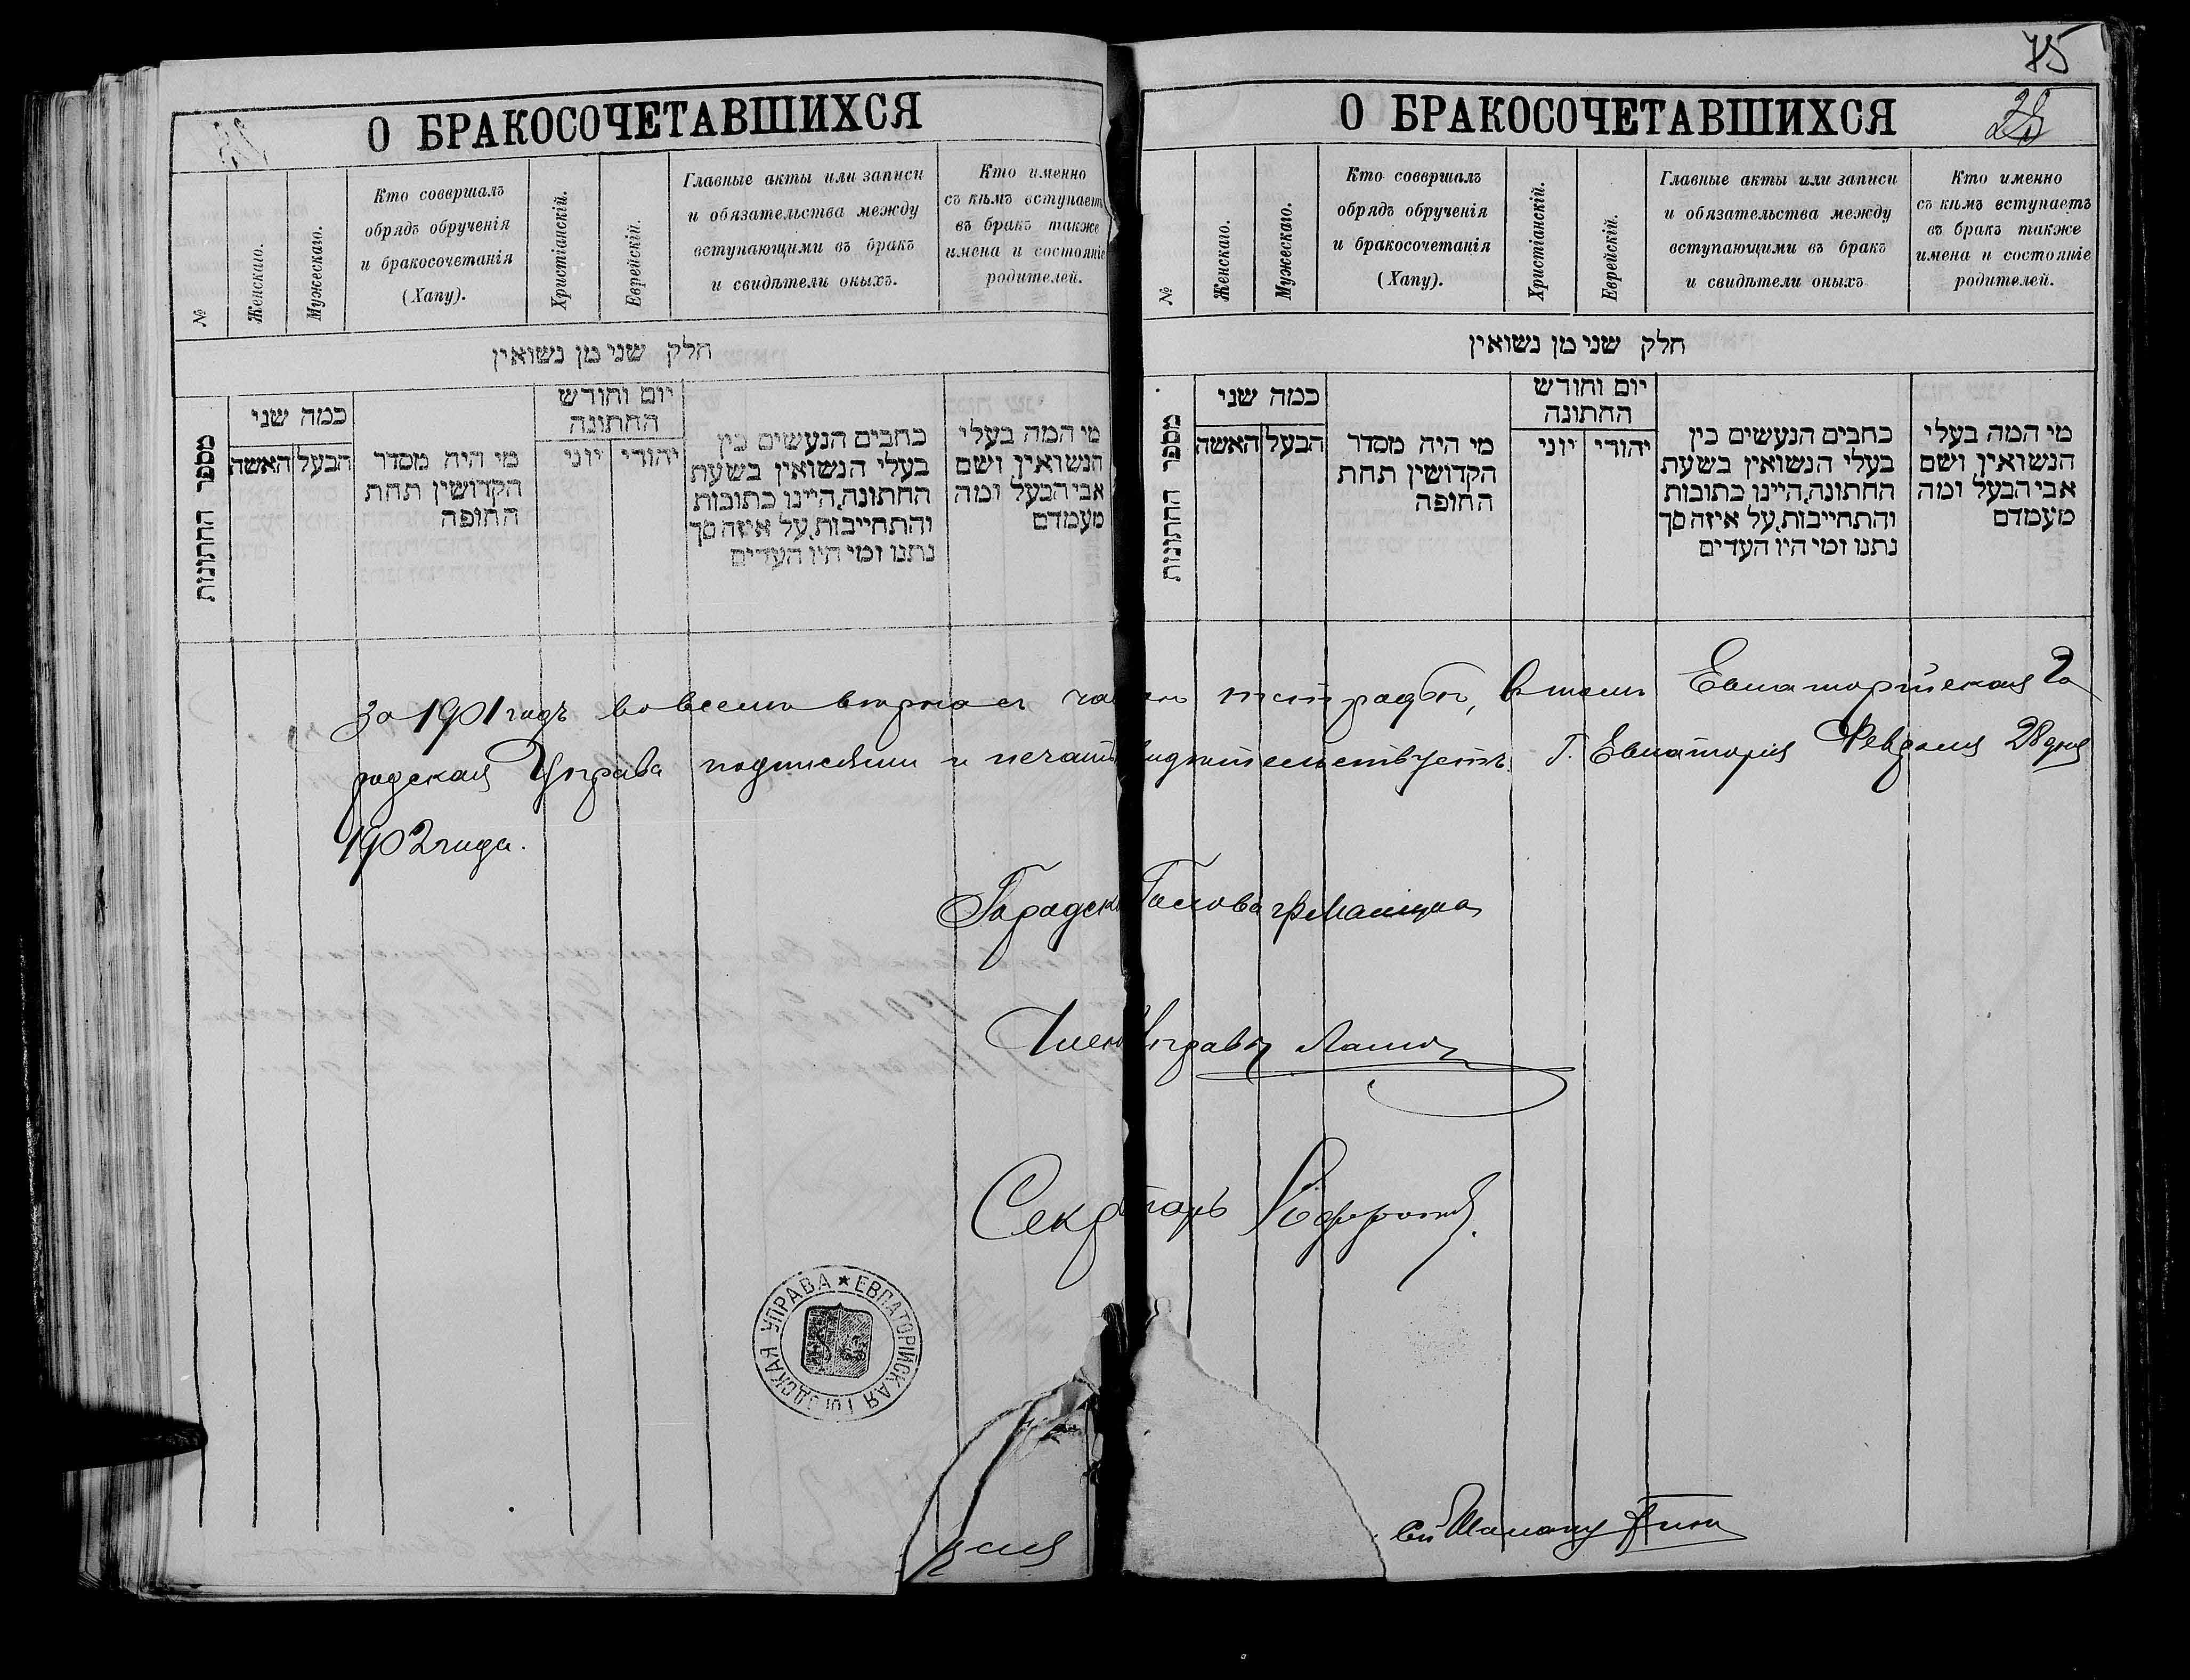 75
О БРАКОСОЧЕТАВШИХСЯ
№
Женскаго.
Мужескаго.
Кто совершалъ
обрядъ обрученія
и бракосочетанія
(Хапу).
Христіанскій.
Еврейскій.
Главные акты или записи
и обязательства между
вступающими въ бракъ
и свидѣтели оныхъ.
Кто именно
съ кѣмъ вступаетъ
въ бракъ также
имена и состояніе
родителей.
חלק שני מן נשואין
מספר החתונות
כמה שני
הבעל האשה
מי היה מסדר
הקדושין תחת
החופה
יום וחודש
החתונה
יהודי יוני
כתבים הנעשים בין
בעלי הנשואין בשעת
החתונה, היינו כתובות
והתחייבות, על איזה סך
נתנו ומי היו העדים
מי המה בעלי
הנשואין ושם
אבי הבעל ומה
מעמדם
О БРАКОСОЧЕТАВШИХСЯ
28
№
Женскаго.
Мужескаго.
Кто совершалъ
обрядъ обрученія
и бракосочетанія
(Хапу).
Христіанскій.
Еврейскій.
Главные акты или записи
и обязательства между
вступающими въ бракъ
и свидѣтели оныхъ
Кто именно
съ кѣмъ вступаетъ
въ бракъ также
имена и состояніе
родителей.
חלק שני מן נשואין
מספר החתונות
כמה שני
הבעל האשה
מי היה מסדר
הקדושין תחת
החופה
יום וחודש
החתונה
יהודי יוני
כתבים הנעשים בין
בעלי הנשואין בשעת
החתונה, היינו כתובות
והתחייבות, על איזה סך
נתנו ומי היו העדים
מי המה בעלי
הנשואין ושם
אבי הבעל ומה
מעמדם
За 1901 годъ во всемъ вѣрна съ тетрадью, въ томъ Евпаторійская Го
родская Управа подписями и печатью г. Евпаторія Февраля 28 дня
1902 года.
Городской Голова
Членъ Управы
Секретарь
ЕВПАТОРІЙСКАЯ ГОРОДСКАЯ УПРАВА